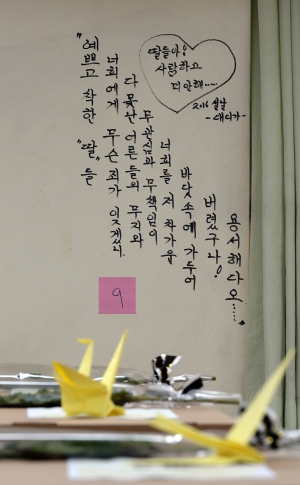 딸들아!
사랑하고
미안해.....
2016 설날
-대디가-
"예쁘고 착한 "딸"들
너희에게 무슨 죄가 있겠니.
다 못난 어른들의 무지와
무관심과 무책임이
너희를 저 차가운
바닷속에 가두어
버렸구나!
용서해다오....."
9